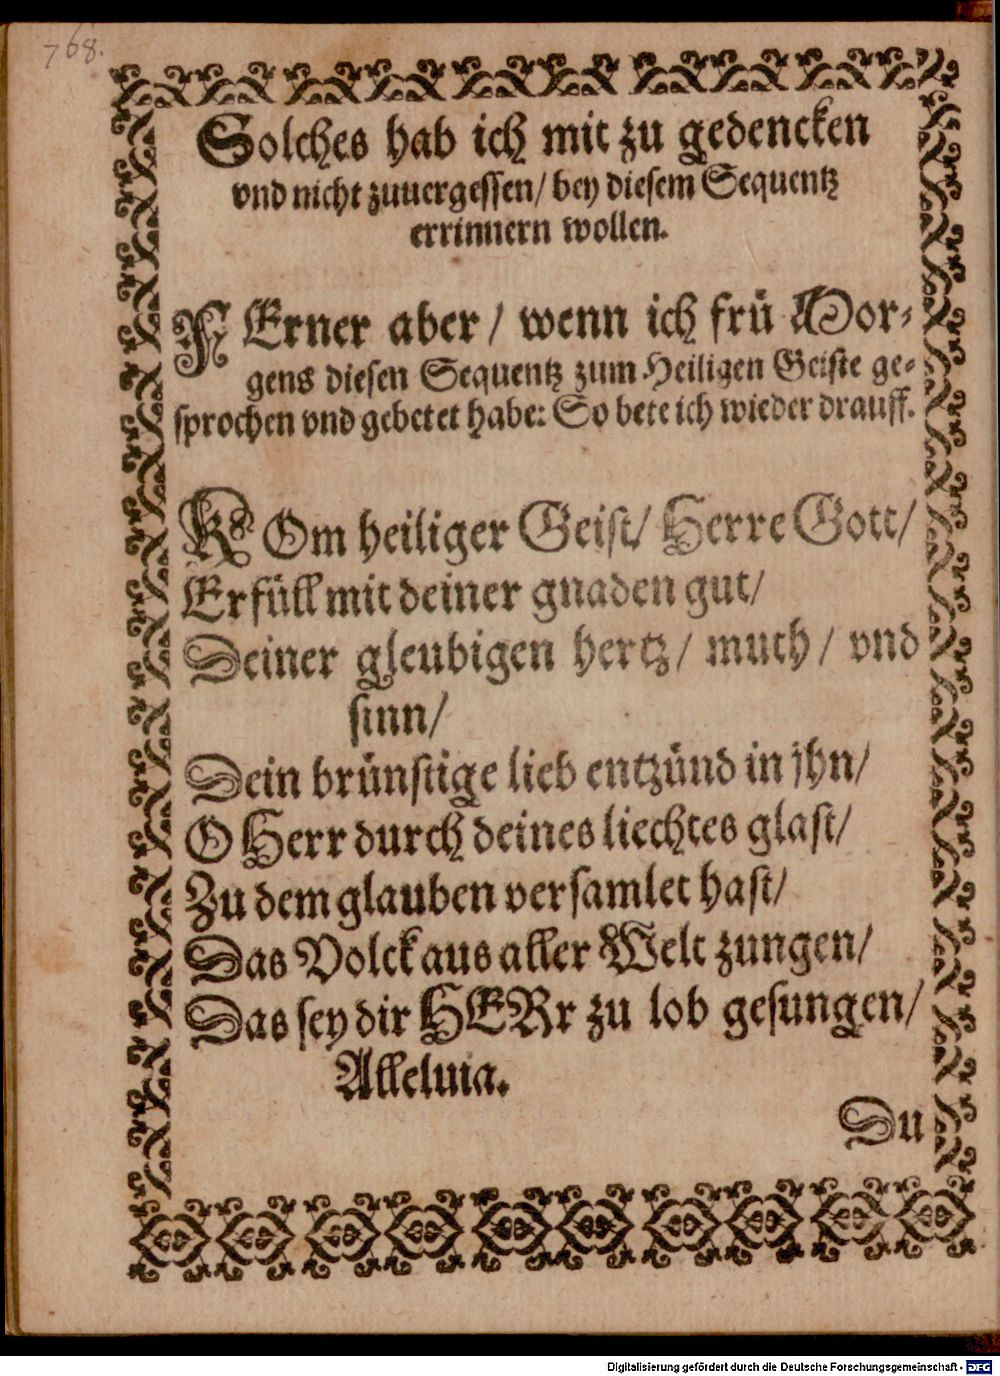 768.
Solches hab ich mit zu gedencken
vnd nicht zuuergessen/ bey diesem Sequentz
errinnern wollen.
FErner aber/ wenn ich frü Mor-
gens diesen Sequentz zum Heiligen Geiste ge-
sprochen vnd gebetet habe: So bete ich wieder drauff.
KOm heiliger Geist/ Herre Gott/
Erfüll mit deiner gnaden gut/
Deiner gleubigen hertz/ muth/ vnd
sinn/
Dein brünstige lieb entzünd in jhn/
O Herr durch deines liechtes glast/
Zu dem glauben versamlet hast/
Das Volck aus aller Welt zungen/
Das sey dir HERr zu lob gesungen/
Alleluia.
Du
Digitalisierung gefördert durch die Deutsche Forschungsgemeinschaft - DFG